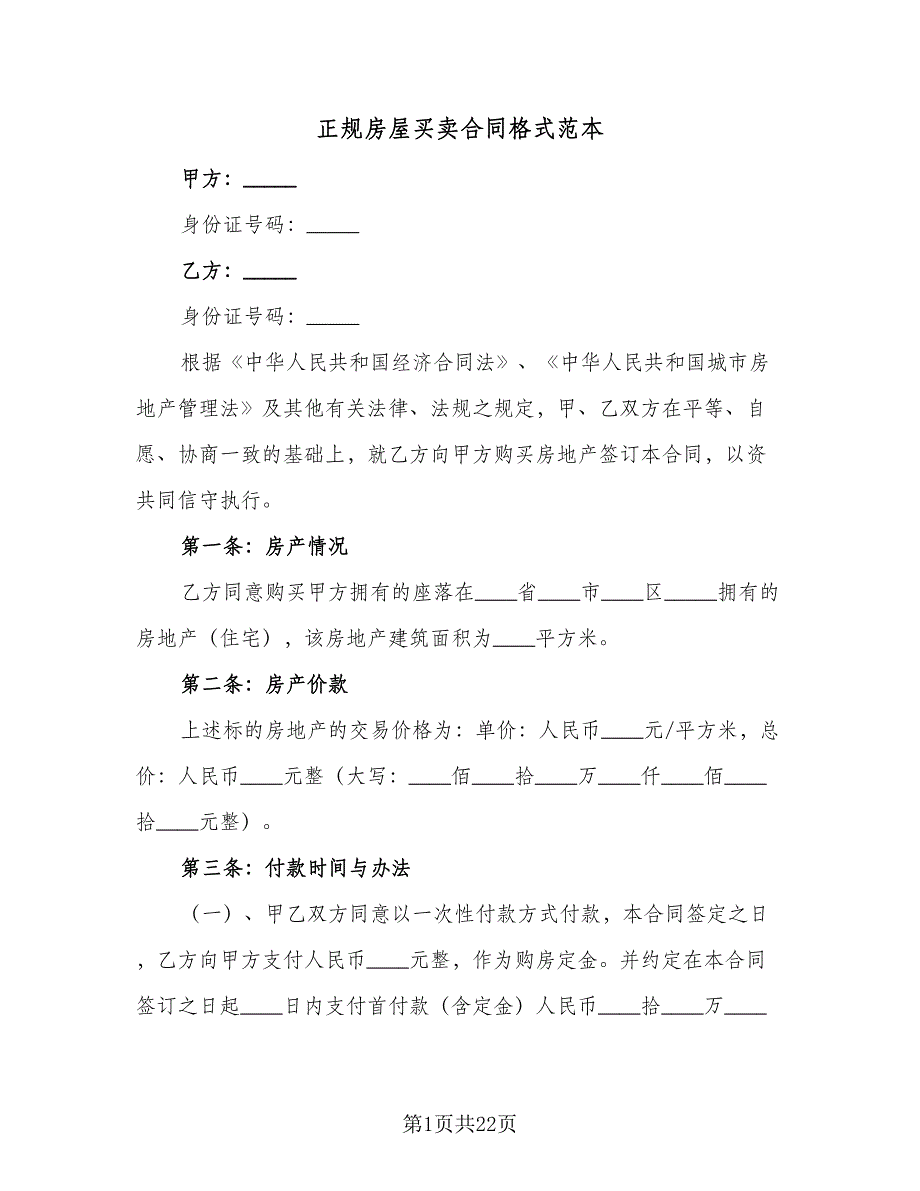 正规房屋买卖合同格式范本
甲方：_____
身份证号码：_____
乙方：_____
身份证号码：_____
根据《中华人民共和国经济合同法》、《中华人民共和国城市房
地产管理法》及其他有关法律、法规之规定，甲、乙双方在平等、自
愿、协商一致的基础上，就乙方向甲方购买房地产签订本合同，以资
共同信守执行。
第一条：房产情况
乙方同意购买甲方拥有的座落在____省____市____区_____拥有的
房地产（住宅），该房地产建筑面积为____平方米。
第二条：房产价款
上述标的房地产的交易价格为：单价：人民币____元/平方米，总
价：人民币____元整（大写：____佰____拾____万____仟____佰____
拾____元整）。
第三条：付款时间与办法
（一）、甲乙双方同意以一次性付款方式付款，本合同签定之日
，乙方向甲方支付人民币____元整，作为购房定金。并约定在本合同
签订之日起____日内支付首付款（含定金）人民币____拾____万____
第1页共22页